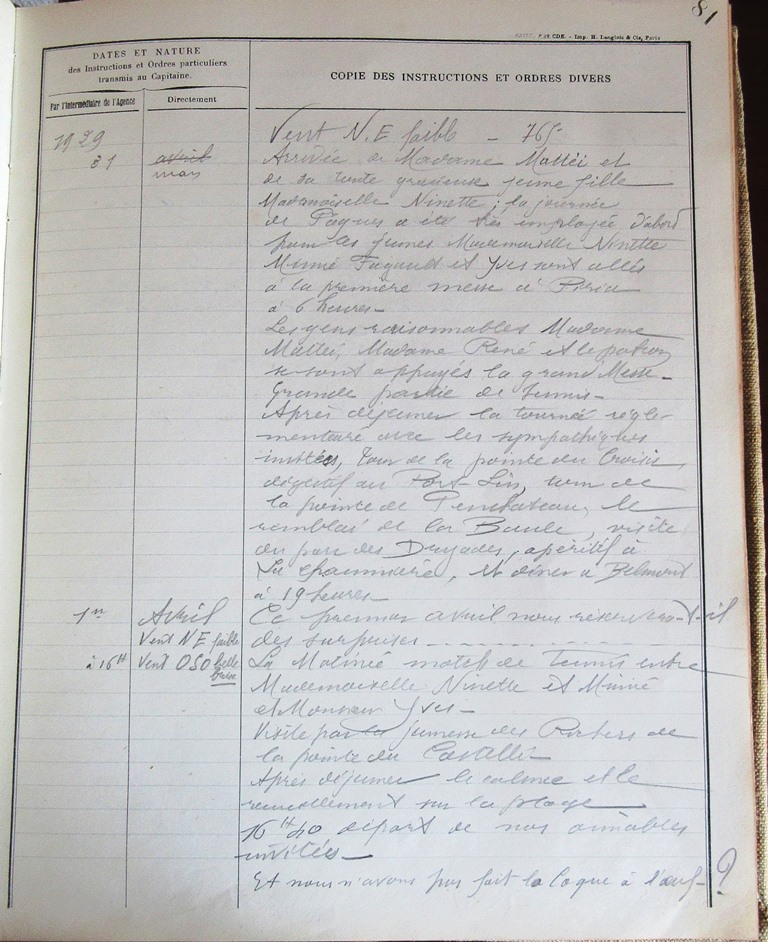 81
CDE. - Imp. H. Langlois & Cie, Paris
DATES ET NATURE
des Instructions et Ordres particuliers
transmis au Capitaine.
Par l'intermédiaire de l'Agence
Directement
COPIE DES INSTRUCTIONS ET ORDRES DIVERS
Vent N.E faible - 765
1929
31 avril Arrivée de Madame Mattéi et
mars de sa toute gracieuse jeune fille
Mademoiselle Ninette ; la journée
de Pâques a été très employée, d'abord
pour les jeunes Mademoiselle Ninette
Mimie et Yves sont allés
à la première messe à Piriac
à 6 heures -
Les gens raisonnables Madame
Mattéi, Madame René et le patron
se sont appuyés la grand Messe -
Grande partie de tennis -
Après déjeuner la tournée régle-
mentaire avec les sympathiques
invitées, tour de la pointe du Croisic
digestif au Port-Lin, tour de
la pointe de Penchateau, le
remblai de la Baule, visite
du parc des Dryades, apéritif à
La chaumière, et diner a Belmont
à 19 heures -
1er Avril Ce premier avril nous réservera-t-il
Vent NE faible des surprises
à 16H Vent OSO belle La Matinée match de Tennis entre
brise Mademoiselle Ninette et Mimie
et Monsieur Yves -
Visite par la jeunesse des Rochers de
la pointe du Castelli -
Après déjeuner le calme et le
recueillement sur la plage
16H40 départ de nos aimables
invités -
Et nous n'avons pas fait la Coque à l'œuf - ?